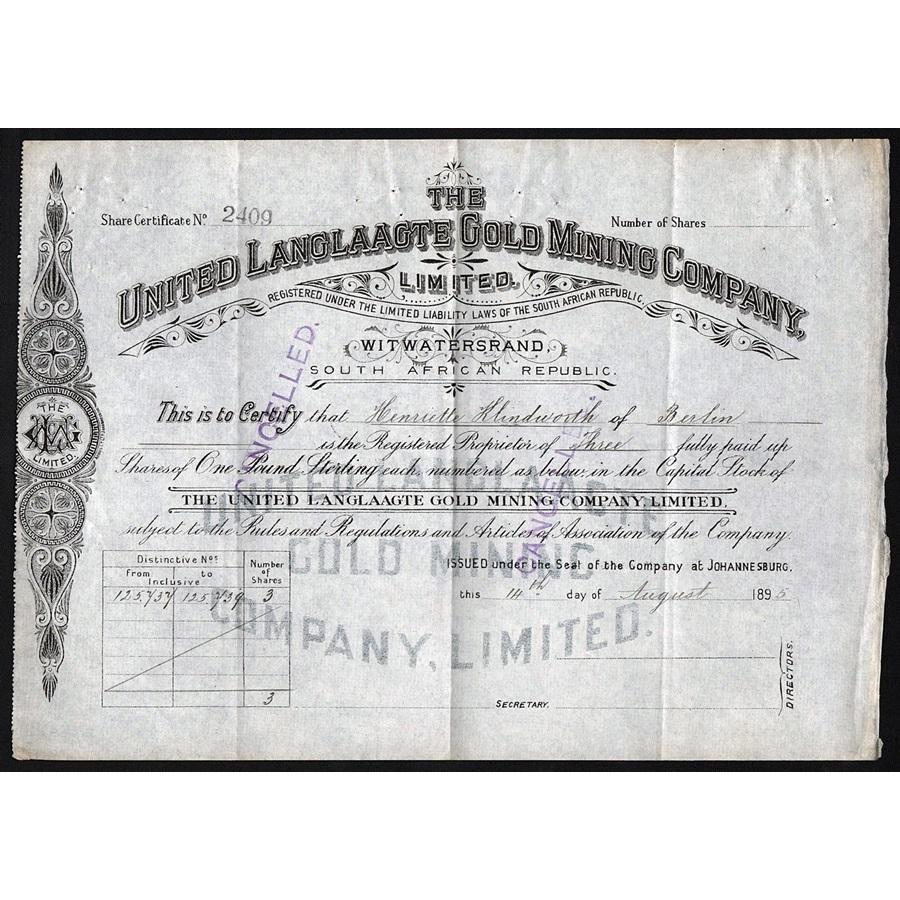 Share Certificate No. 2409
Number of Shares
THE
UNITED LANGLAAGTE GOLD MINING COMPANY,
LIMITED.
REGISTERED UNDER THE LIMITED LIABILITY LAWS OF THE SOUTH AFRICAN REPUBLIC,
WITWATERSRAND,
SOUTH AFRICAN REPUBLIC.
CANCELLED.
This is to Certify that Henriette Klindworth of Berlin
is the Registered Proprietor of Three fully paid up
Shares of One Pound Sterling each, numbered as below, in the Capital Stock of
THE UNITED LANGLAAGTE GOLD MINING COMPANY, LIMITED.
subject to the Rules and Regulations and Articles of Association of the Company.
THE
LIMITED.
UNITED LANGLAAGTE
GOLD MINING
COMPANY, LIMITED.
Distinctive Nos. Number of Shares
from to
Inclusive
125737 125739 3
3
ISSUED under the Seal of the Company at JOHANNESBURG.
this 14th day of August 1895
DIRECTORS.
SECRETARY.